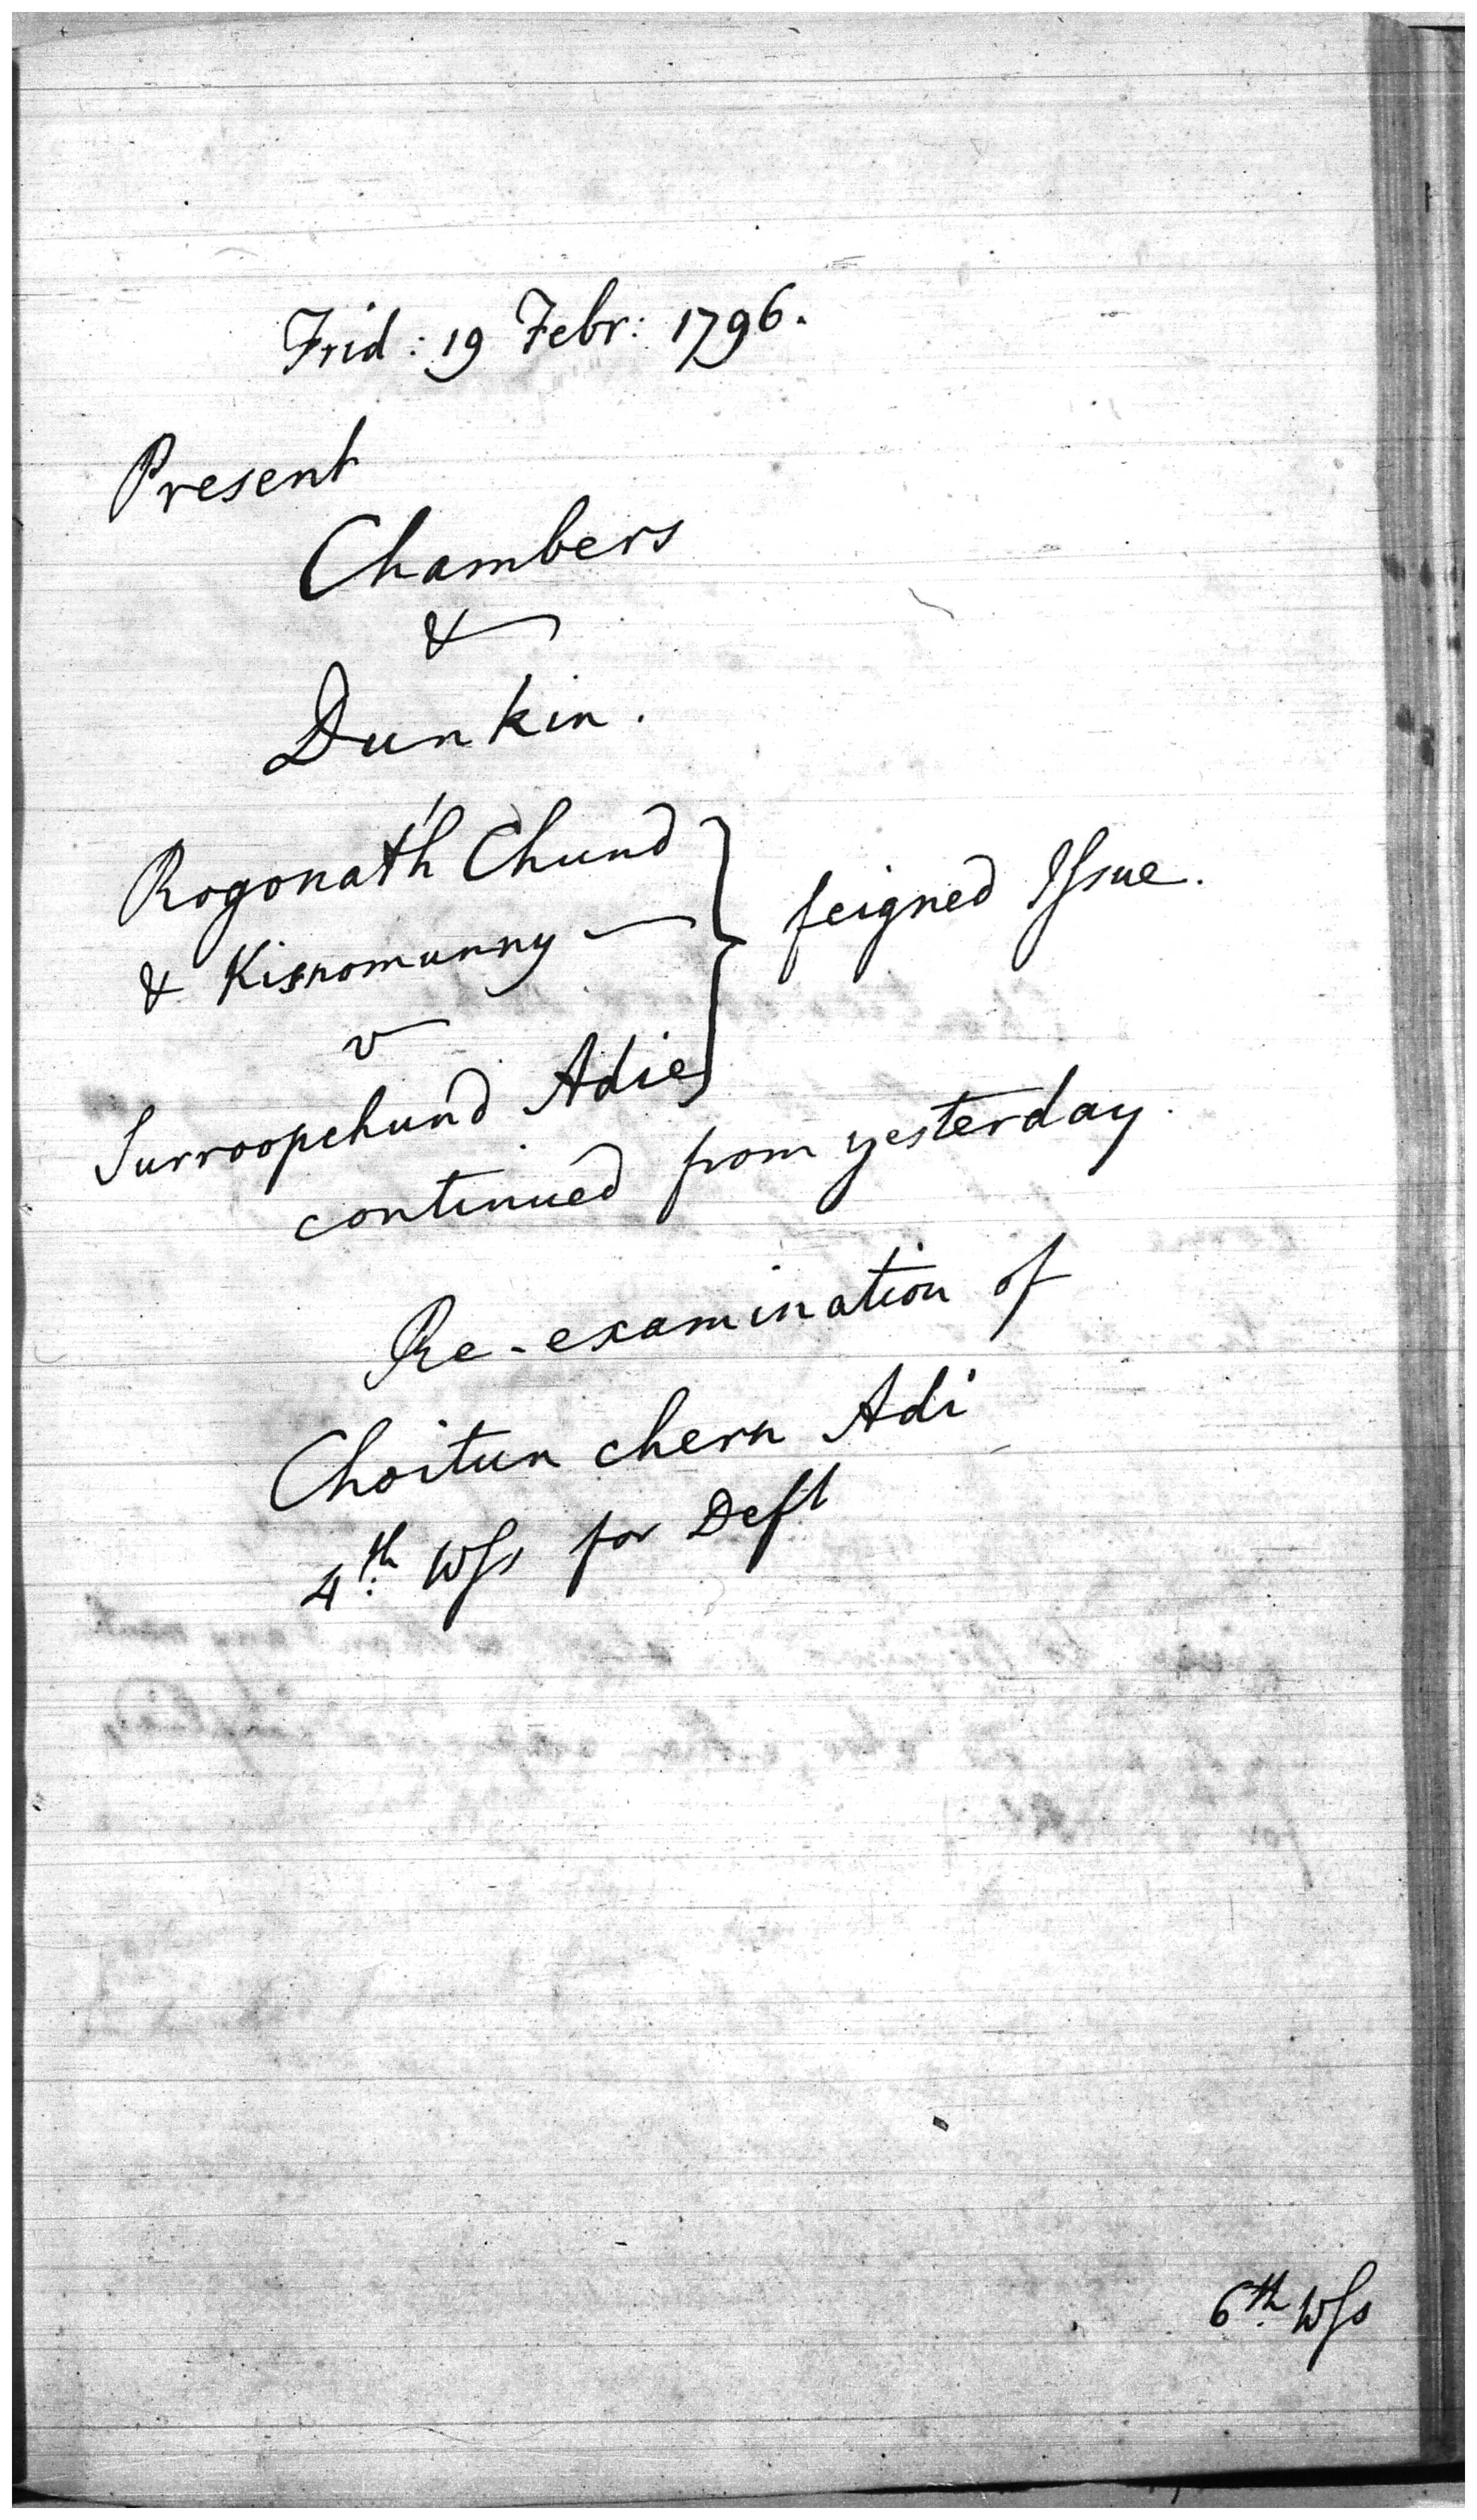 Frid: 19 Febr: 1796.
Present
Chambers
&
Dunkin.
Rogonath Chund
& Kisnomunny
feigned Issue.
v
Surroopchund Adie
continued from yesterday.
Re-examination of
Choitun chern Adi
4th Wss for Deft
6th Wss